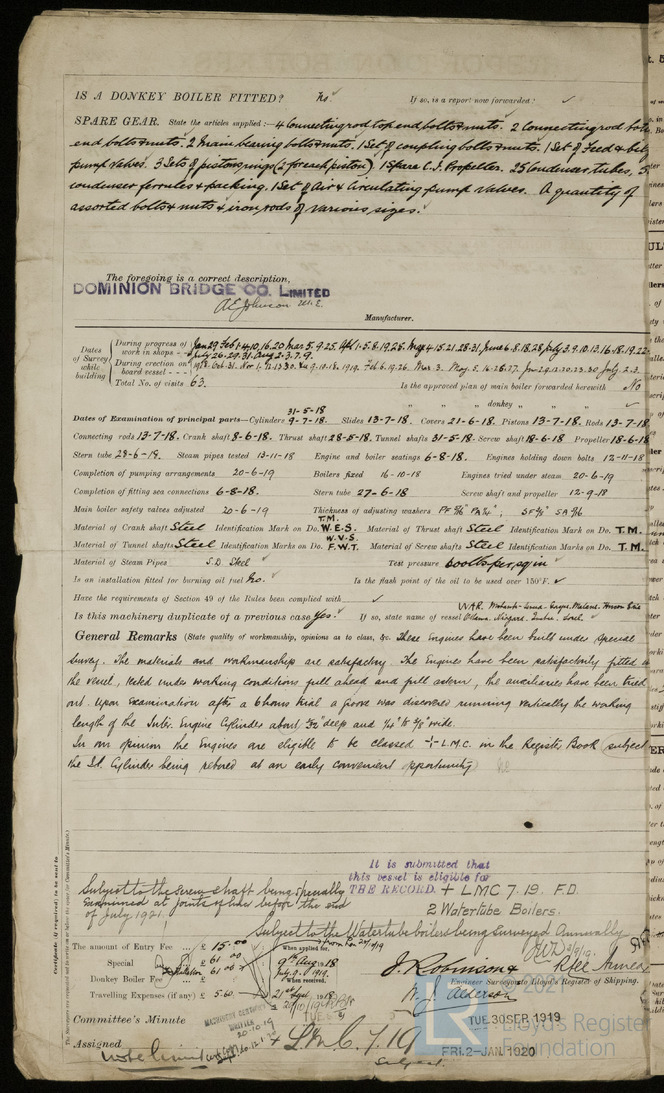 IS A DONKEY BOILER FITTED? No. If so, is a report now forwarded? ✓
SPARE GEAR. State the articles supplied:— 4 Connecting rod top end bolts & nuts. 2 Connecting rod bott
end bolts & nuts. 2 Main bearing bolts & nuts. 1 Set of coupling bolts & nuts. 1 Set of Feed & bilge
pump valves. 3 Sets of piston rings (2 for each piston). 1 Spare C.I. Propeller. 25 Condenser tubes, 5
condenser ferrules & packing. 1 Set of Air & Circulating pump valves. A quantity of
assorted bolts & nuts & iron rods of various sizes.
The foregoing is a correct description,
DOMINION BRIDGE CO. LIMITED
A E Johnson
Manufacturer.
Dates of Survey while building
During progress of work in shops - - Jan 29 Feb 1. 4. 10. 16. 20 Mar 5. 9. 25. Apl 1. 5. 8. 19. 25. May 4. 15. 21. 28. 31. June 6. 8. 18. 28. July 3. 9. 10. 13. 16. 18. 19. 22.
July 26. 29. 31. Aug 2. 3. 7. 9.
During erection on board vessel - - - 1918. Oct. 31. Nov 1. 12. 13. 30.
Total No. of visits 63. Is the approved plan of main boiler forwarded herewith No
" " " donkey " " " ✓
31-5-18
Dates of Examination of principal parts—Cylinders 9-7-18. Slides 13-7-18. Covers 21-6-18. Pistons 13-7-18. Rods 13-7-18.
Connecting rods 13-7-18. Crank shaft 8-6-18. Thrust shaft 28-5-18. Tunnel shafts 31-5-18. Screw shaft 18-6-18 Propeller 18-6-18
Stern tube 28-6-18. Steam pipes tested 13-11-18 Engine and boiler seatings 6-8-18. Engines holding down bolts 12-11-18
Completion of pumping arrangements 20-6-19 Boilers fixed 16-10-18 Engines tried under steam 20-6-19
Completion of fitting sea connections 6-8-18. Stern tube 27-6-18 Screw shaft and propeller 12-9-18
Main boiler safety valves adjusted 20-6-19 Thickness of adjusting washers
T.M.
Material of Crank shaft Steel Identification Mark on Do. W.E.S. Material of Thrust shaft Steel Identification Mark on Do. T.M.
W.V.S.
Material of Tunnel shafts Steel Identification Marks on Do. F.W.T. Material of Screw shafts Steel Identification Marks on Do. T.M.
Material of Steam Pipes S.D. Steel Test pressure 600 lbs per sq in
Is an installation fitted for burning oil fuel No. Is the flash point of the oil to be used over 150°F. ✓
Have the requirements of Section 49 of the Rules been complied with ✓
Is this machinery duplicate of a previous case Yes. If so, state name of vessel WAR
General Remarks (State quality of workmanship, opinions as to class, &c. These Engines have been built under special
survey. The materials and workmanship are satisfactory. The Engines have been satisfactorily fitted in
the vessel, tested under working conditions full ahead and full astern, the auxiliaries have been tried
out. Upon examination after a 6 hours trial a groove was discovered running vertically the working
length of the Inter. Engine Cylinder about 1/32" deep and 1/16" to 1/8" wide.
In our opinion the Engines are eligible to be classed + L.M.C. in the Register Book subject
the I.P. Cylinder being rebored at an early convenient opportunity
It is submitted that
this vessel is eligible for
THE RECORD. + LMC 7.19. F.D.
2 Watertube Boilers.
Subject to the Screw shaft being specially
examined at joints of liner before the end
of July 1921.
Subject to the Watertube boilers being surveyed Annually
The amount of Entry Fee ... £ 15.00 When applied for,
Special ... £ 61 00 9th Aug. 1918
Donkey Boiler Fee ... £ 61 00 July 9. 1919.
When received,
Travelling Expenses (if any) £ 5.60 21st Sept 1918
J. Robinson &
W. J. Alderson
Engineer Surveyors to Lloyd's Register of Shipping.
Committee's Minute
TUE. 30 SEP 1919
FRI. 2 - JAN. 1920
Assigned + L.M.C. 7.19
Subject
MACHINERY CERTIFICATE
WRITTEN
© 2021
Lloyd's Register
Foundation